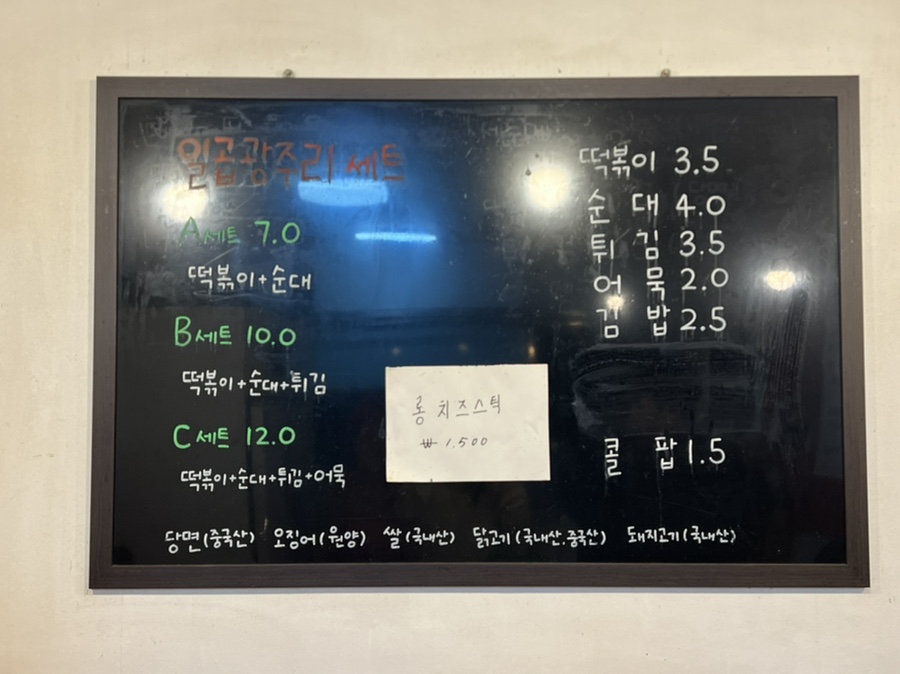 일곱광주리 세트
A세트 7.0
떡볶이+순대
B세트 10.0
떡볶이+순대+튀김
C세트 12.0
떡볶이+순대+튀김+어묵
롱 치즈스틱
₩ 1,500
떡볶이 3.5
순 대 4.0
튀 김 3.5
어 묵 2.0
김 밥 2.5
콜 팝 1.5
당면(중국산) 오징어(원양) 쌀(국내산) 닭고기(국내산.중국산) 돼지고기(국내산)